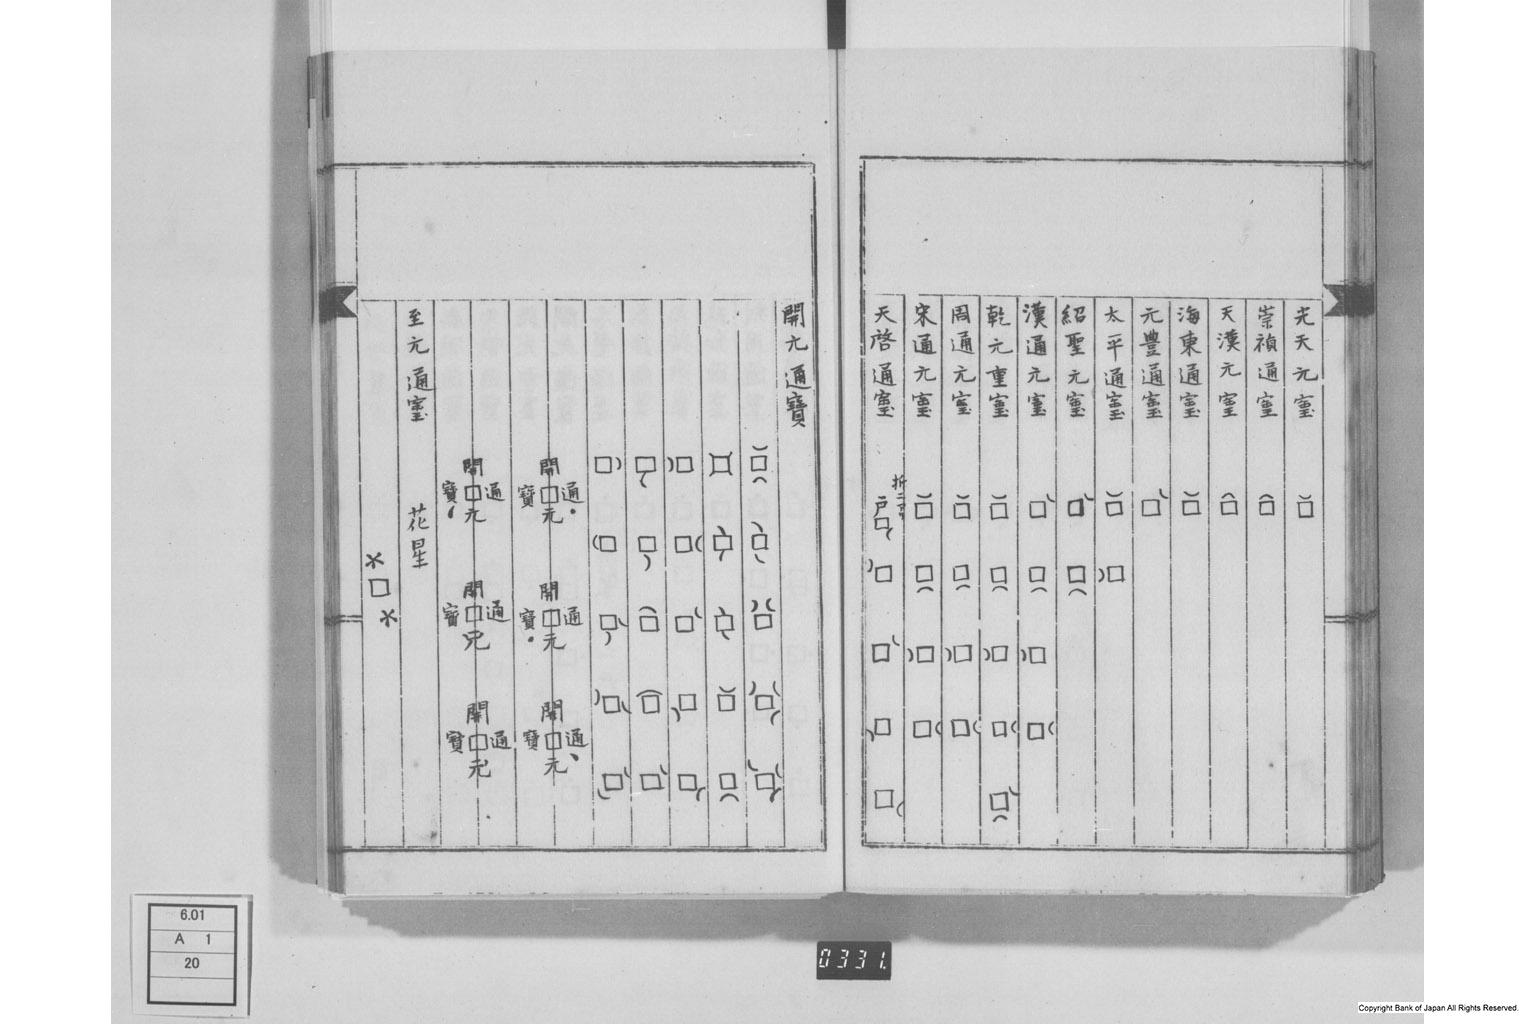 光天元寳
崇禎通寳
天漢元寳
海東通寳
元豐通寳
太平通寳
紹聖元寳
漢通元寳
乾元重寳
周通元寳
宋通元寳
天啓通寳
戸
開元通寶
開元通寶
開元通寶
開元通寶
開元通寶
開元通寶
開元通寶
至元通寳 花星
6.01
A 1
20
0331.
Copyright Bank of Japan All Rights Reserved.